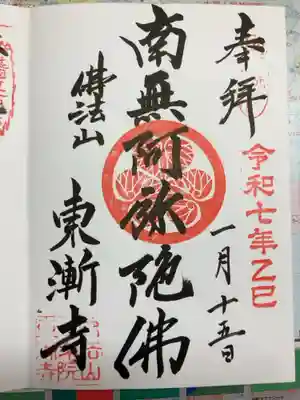 奉拝
令和七年乙巳
一月十五日
南無阿弥陀佛
佛法山
東漸寺